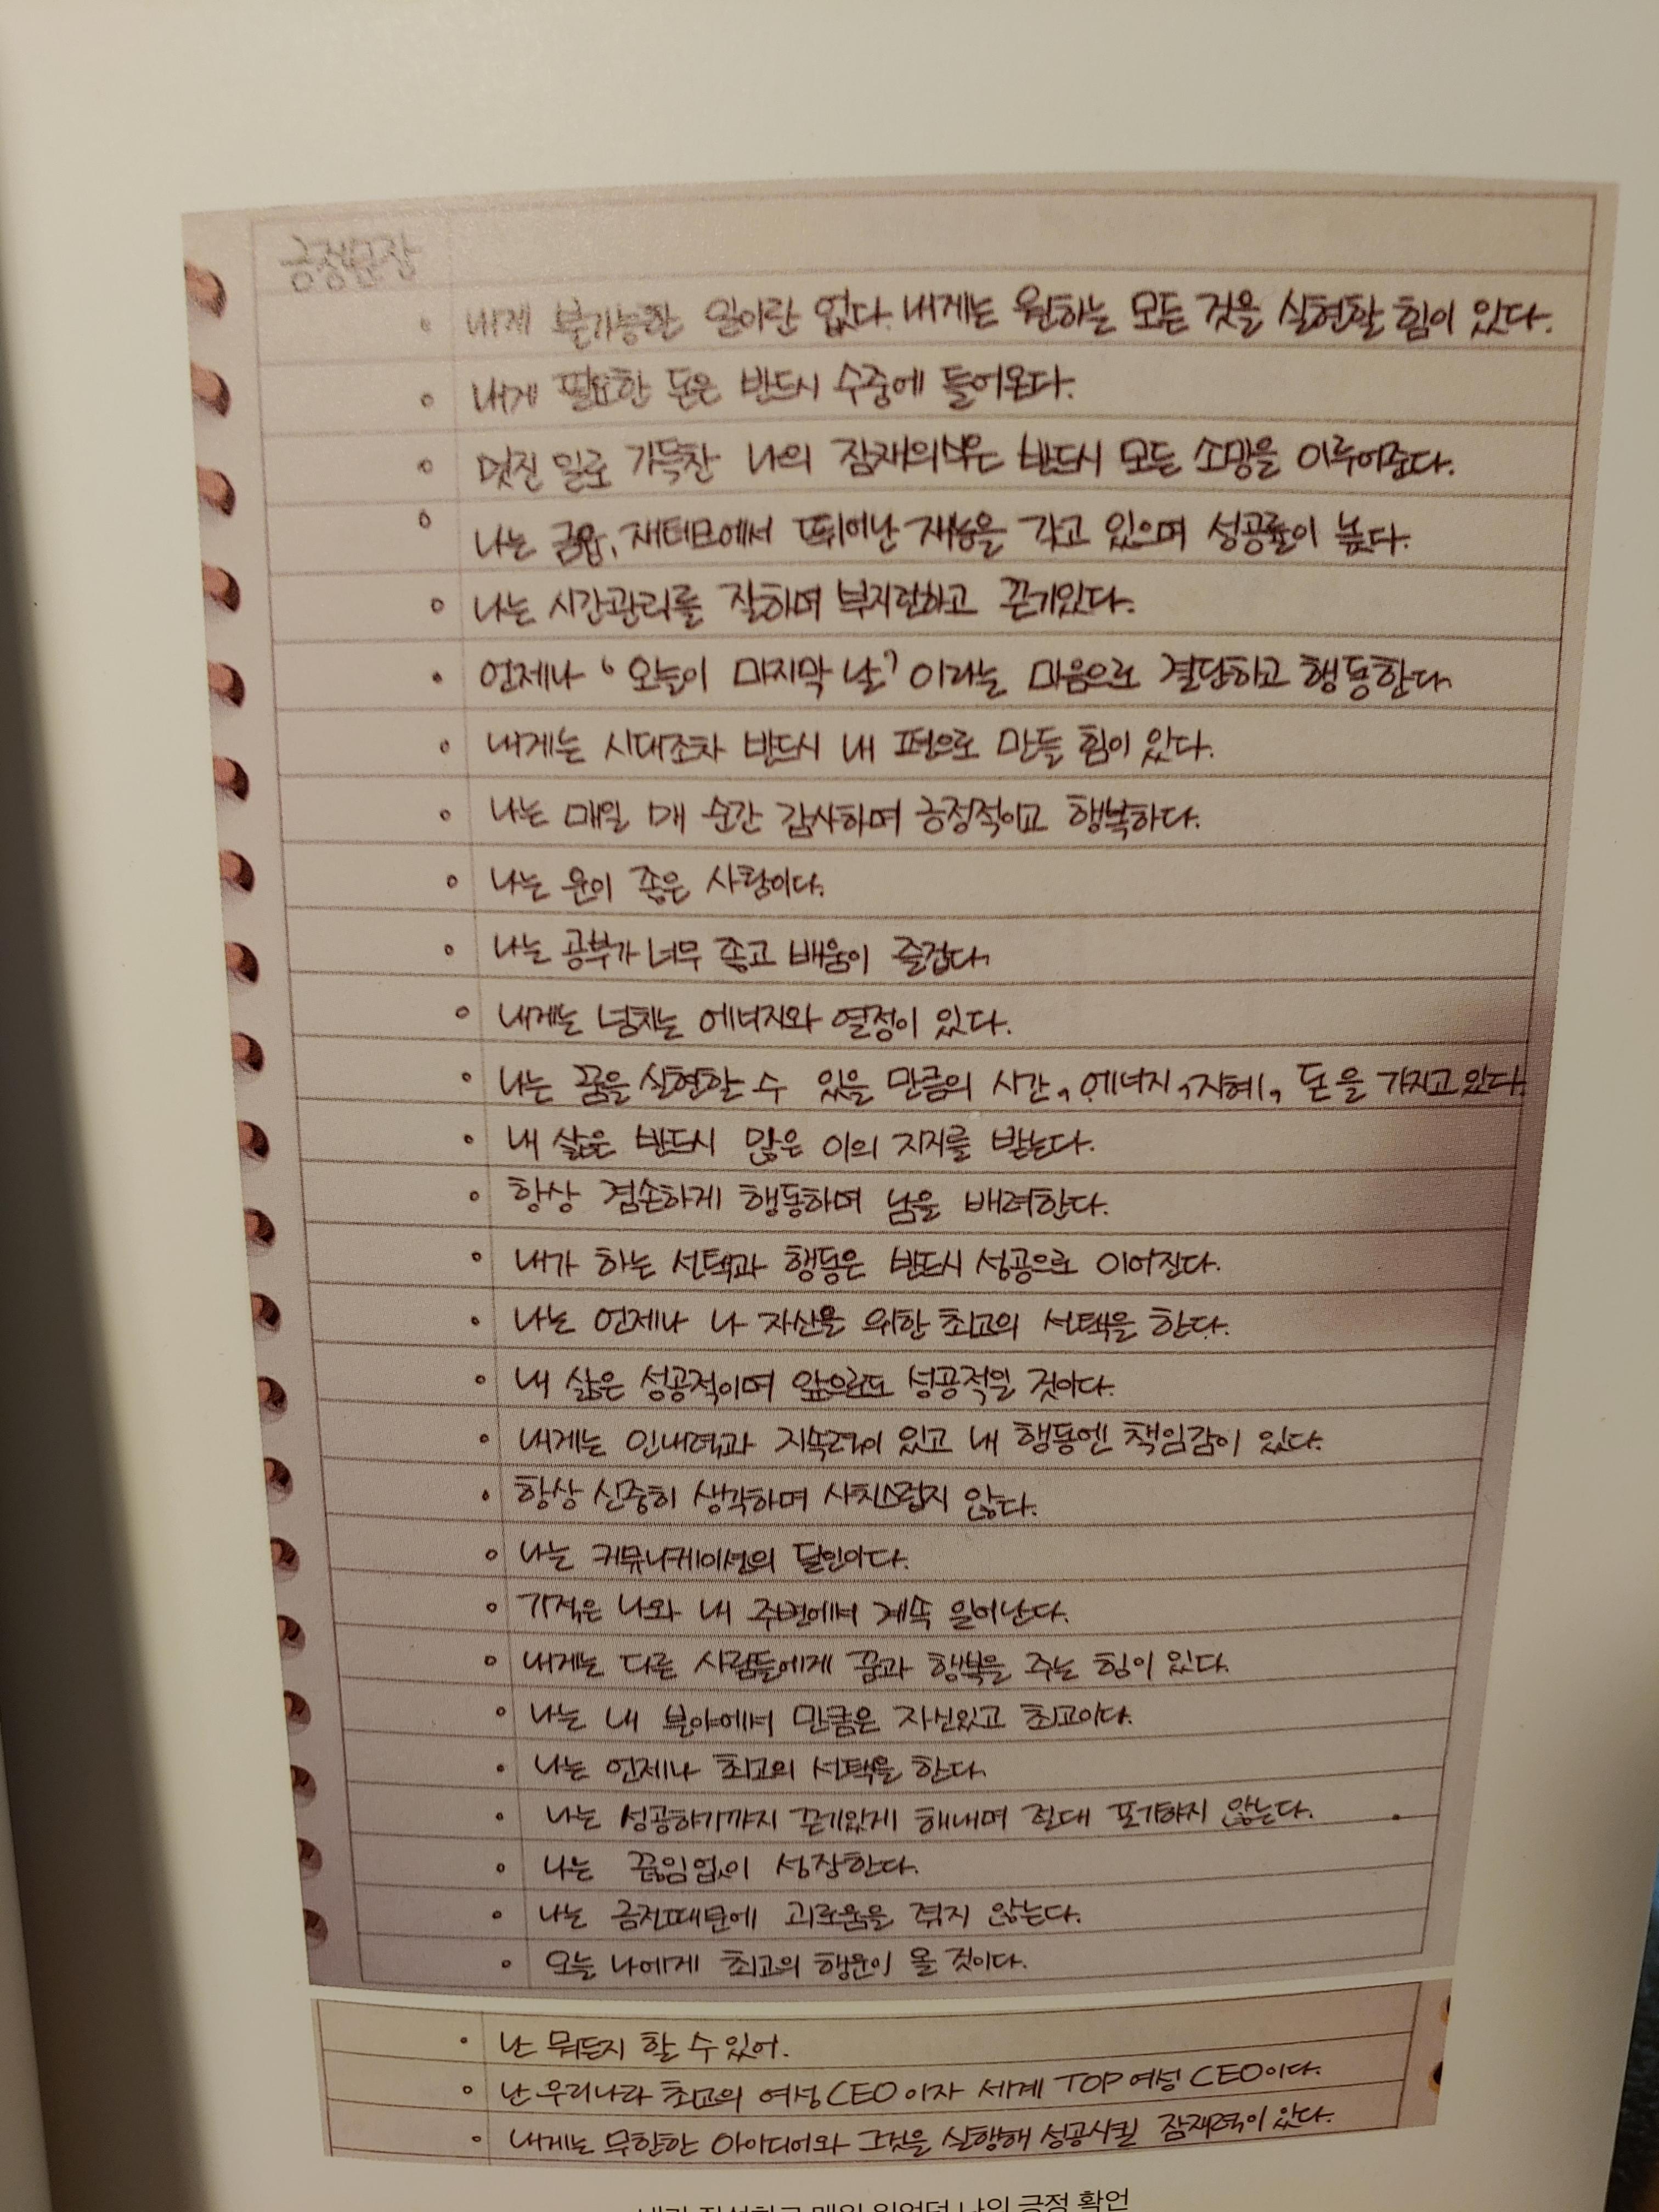 긍정문장
• 내게 불가능한 일이란 없다. 내게는 원하는 모든 것을 실현할 힘이 있다.
• 내게 필요한 돈은 반드시 수중에 들어온다.
• 멋진 일로 가득찬 나의 잠재의식은 반드시 모든 소망을 이루어준다.
• 나는 금융, 재테크에서 뛰어난 재능을 갖고 있으며 성공률이 높다.
• 나는 시간관리를 잘하며 부지런하고 끈기있다.
• 언제나 '오늘이 마지막 날' 이라는 마음으로 결단하고 행동한다.
• 내게는 시대조차 반드시 내 편으로 만들 힘이 있다.
• 나는 매일 매 순간 감사하며 긍정적이고 행복하다.
• 나는 운이 좋은 사람이다.
• 나는 공부가 너무 좋고 배움이 즐겁다.
• 내게는 넘치는 에너지와 열정이 있다.
• 나는 꿈을 실현할 수 있을 만큼의 시간, 에너지, 지혜, 돈을 가지고 있다.
• 내 삶은 반드시 많은 이의 지지를 받는다.
• 항상 겸손하게 행동하며 남을 배려한다.
• 내가 하는 선택과 행동은 반드시 성공으로 이어진다.
• 나는 언제나 나 자신을 위한 최고의 선택을 한다.
• 내 삶은 성공적이며 앞으로도 성공적일 것이다.
• 내게는 인내력과 지속력이 있고 내 행동엔 책임감이 있다.
• 항상 신중히 생각하며 사치스럽지 않다.
• 나는 커뮤니케이션의 달인이다.
• 기적은 나와 내 주변에서 계속 일어난다.
• 내게는 다른 사람들에게 꿈과 행복을 주는 힘이 있다.
• 나는 내 분야에서 만큼은 자신있고 최고이다.
• 나는 언제나 최고의 선택을 한다.
• 나는 성공하기까지 끈기있게 해내며 절대 포기하지 않는다.
• 나는 끊임없이 성장한다.
• 나는 금전때문에 괴로움을 겪지 않는다.
• 오늘 나에게 최고의 행운이 올 것이다.
• 난 뭐든지 할 수 있어.
• 난 우리나라 최고의 여성 CEO이자 세계 TOP 여성 CEO이다.
• 내게는 무한한 아이디어와 그것을 실행해 성공시킬 잠재력이 있다.
내가 작성하고 매일 읽었던 나의 긍정 확언